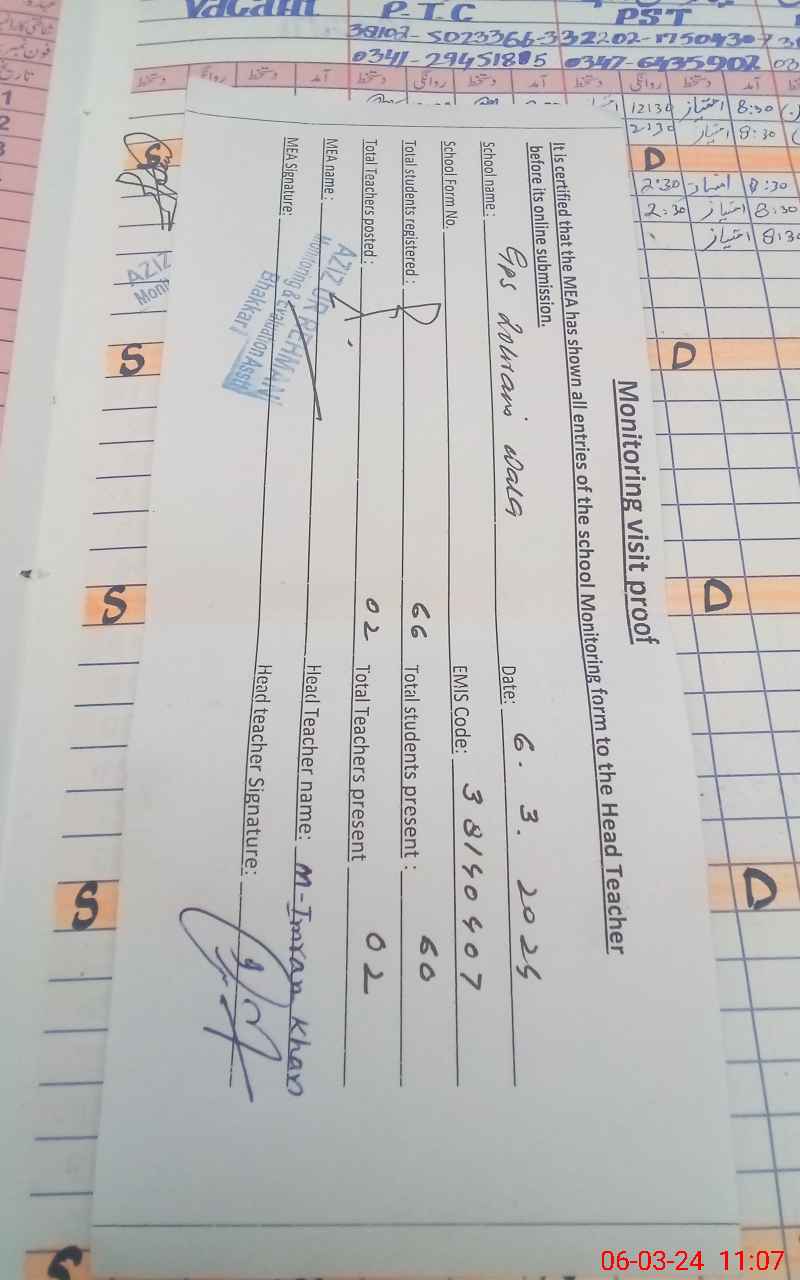 Vacant P.T.C PST
38102-5023366-3 32202-1750430-7
0341-2945185 0347-6435902 03
دستخط روانگی دستخط آمد دستخط روانگی دستخط آمد دستخط روانگی دستخط آمد
8:30 امتیاز 12:30
8:30 امتیاز 2:30
D
8:30 امتیاز 2:30
8:30 امتیاز 2:30
8:30 امتیاز
Monitoring visit proof
It is certified that the MEA has shown all entries of the school Monitoring form to the Head Teacher
before its online submission.
School name: GPS Lohrani Wala Date: 6.3.2024
School Form No. EMIS Code: 38140407
Total students registered: 66 Total students present: 60
Total Teachers posted: 02 Total Teachers present 02
MEA name: Head Teacher name: M-Imran Khan
MEA Signature: Head teacher Signature:
AZIZ UR REHMAN
Monitoring & Evaluation Asstt
Bhakkar
AZIZ
Moni
S
D
S
D
S
D
S
06-03-24 11:07